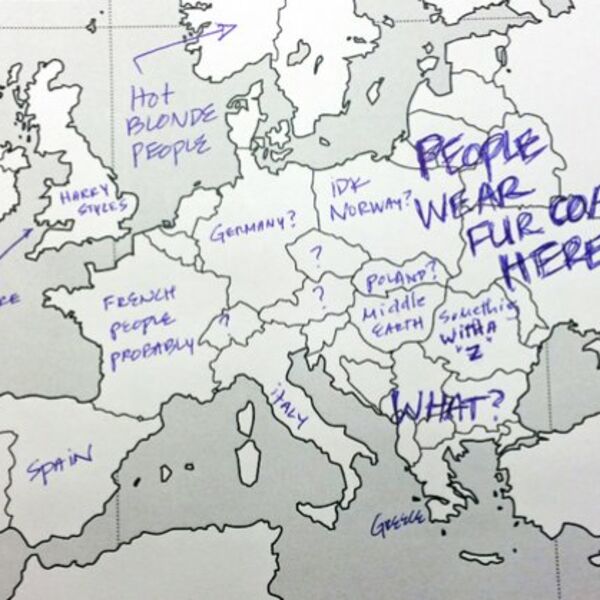 HOT
BLONDE
PEOPLE
HARRY
STYLES
GERMANY?
IDK
NORWAY?
PEOPLE
WEAR
FUR COA
HERE
?
?
?
POLAND?
MIDDLE
EARTH
Something
WITH A
"Z"
FRENCH
PEOPLE
PROBABLY
ITALY
WHAT?
SPAIN
GREECE